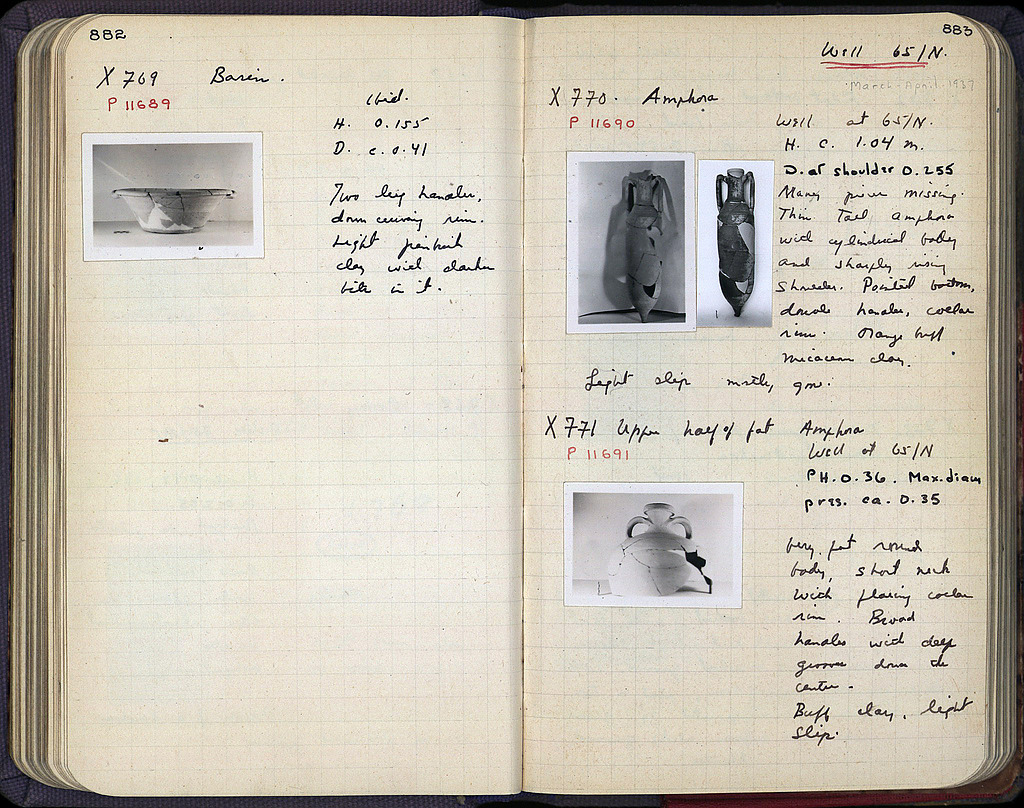 882
X 769 Basin.
P 11689
Ibid.
H. 0.155
D. c. 0.41
Two leg handles,
down curving rim.
Light pinkish
clay with darker
bits in it.
883
Well 65/N.
March-April 1937
X 770. Amphora
P 11690
Well at 65/N.
H. c. 1.04 m.
D. at shoulder 0.255
Many pieces missing.
Thin Tall amphora
with cylindrical body
and sharply rising
shoulder. Pointed bottom,
double handles, collar
rim. Orange buff
micaceous clay.
Light slip mostly gone.
X 771 Upper half of fat Amphora
P 11691
Well at 65/N
PH. 0.36. Max. diam
pres. ca. 0.35
Very fat round
body, short neck
with flaring collar
rim. Broad
handles with deep
groove down the
center.
Buff clay, light
slip.